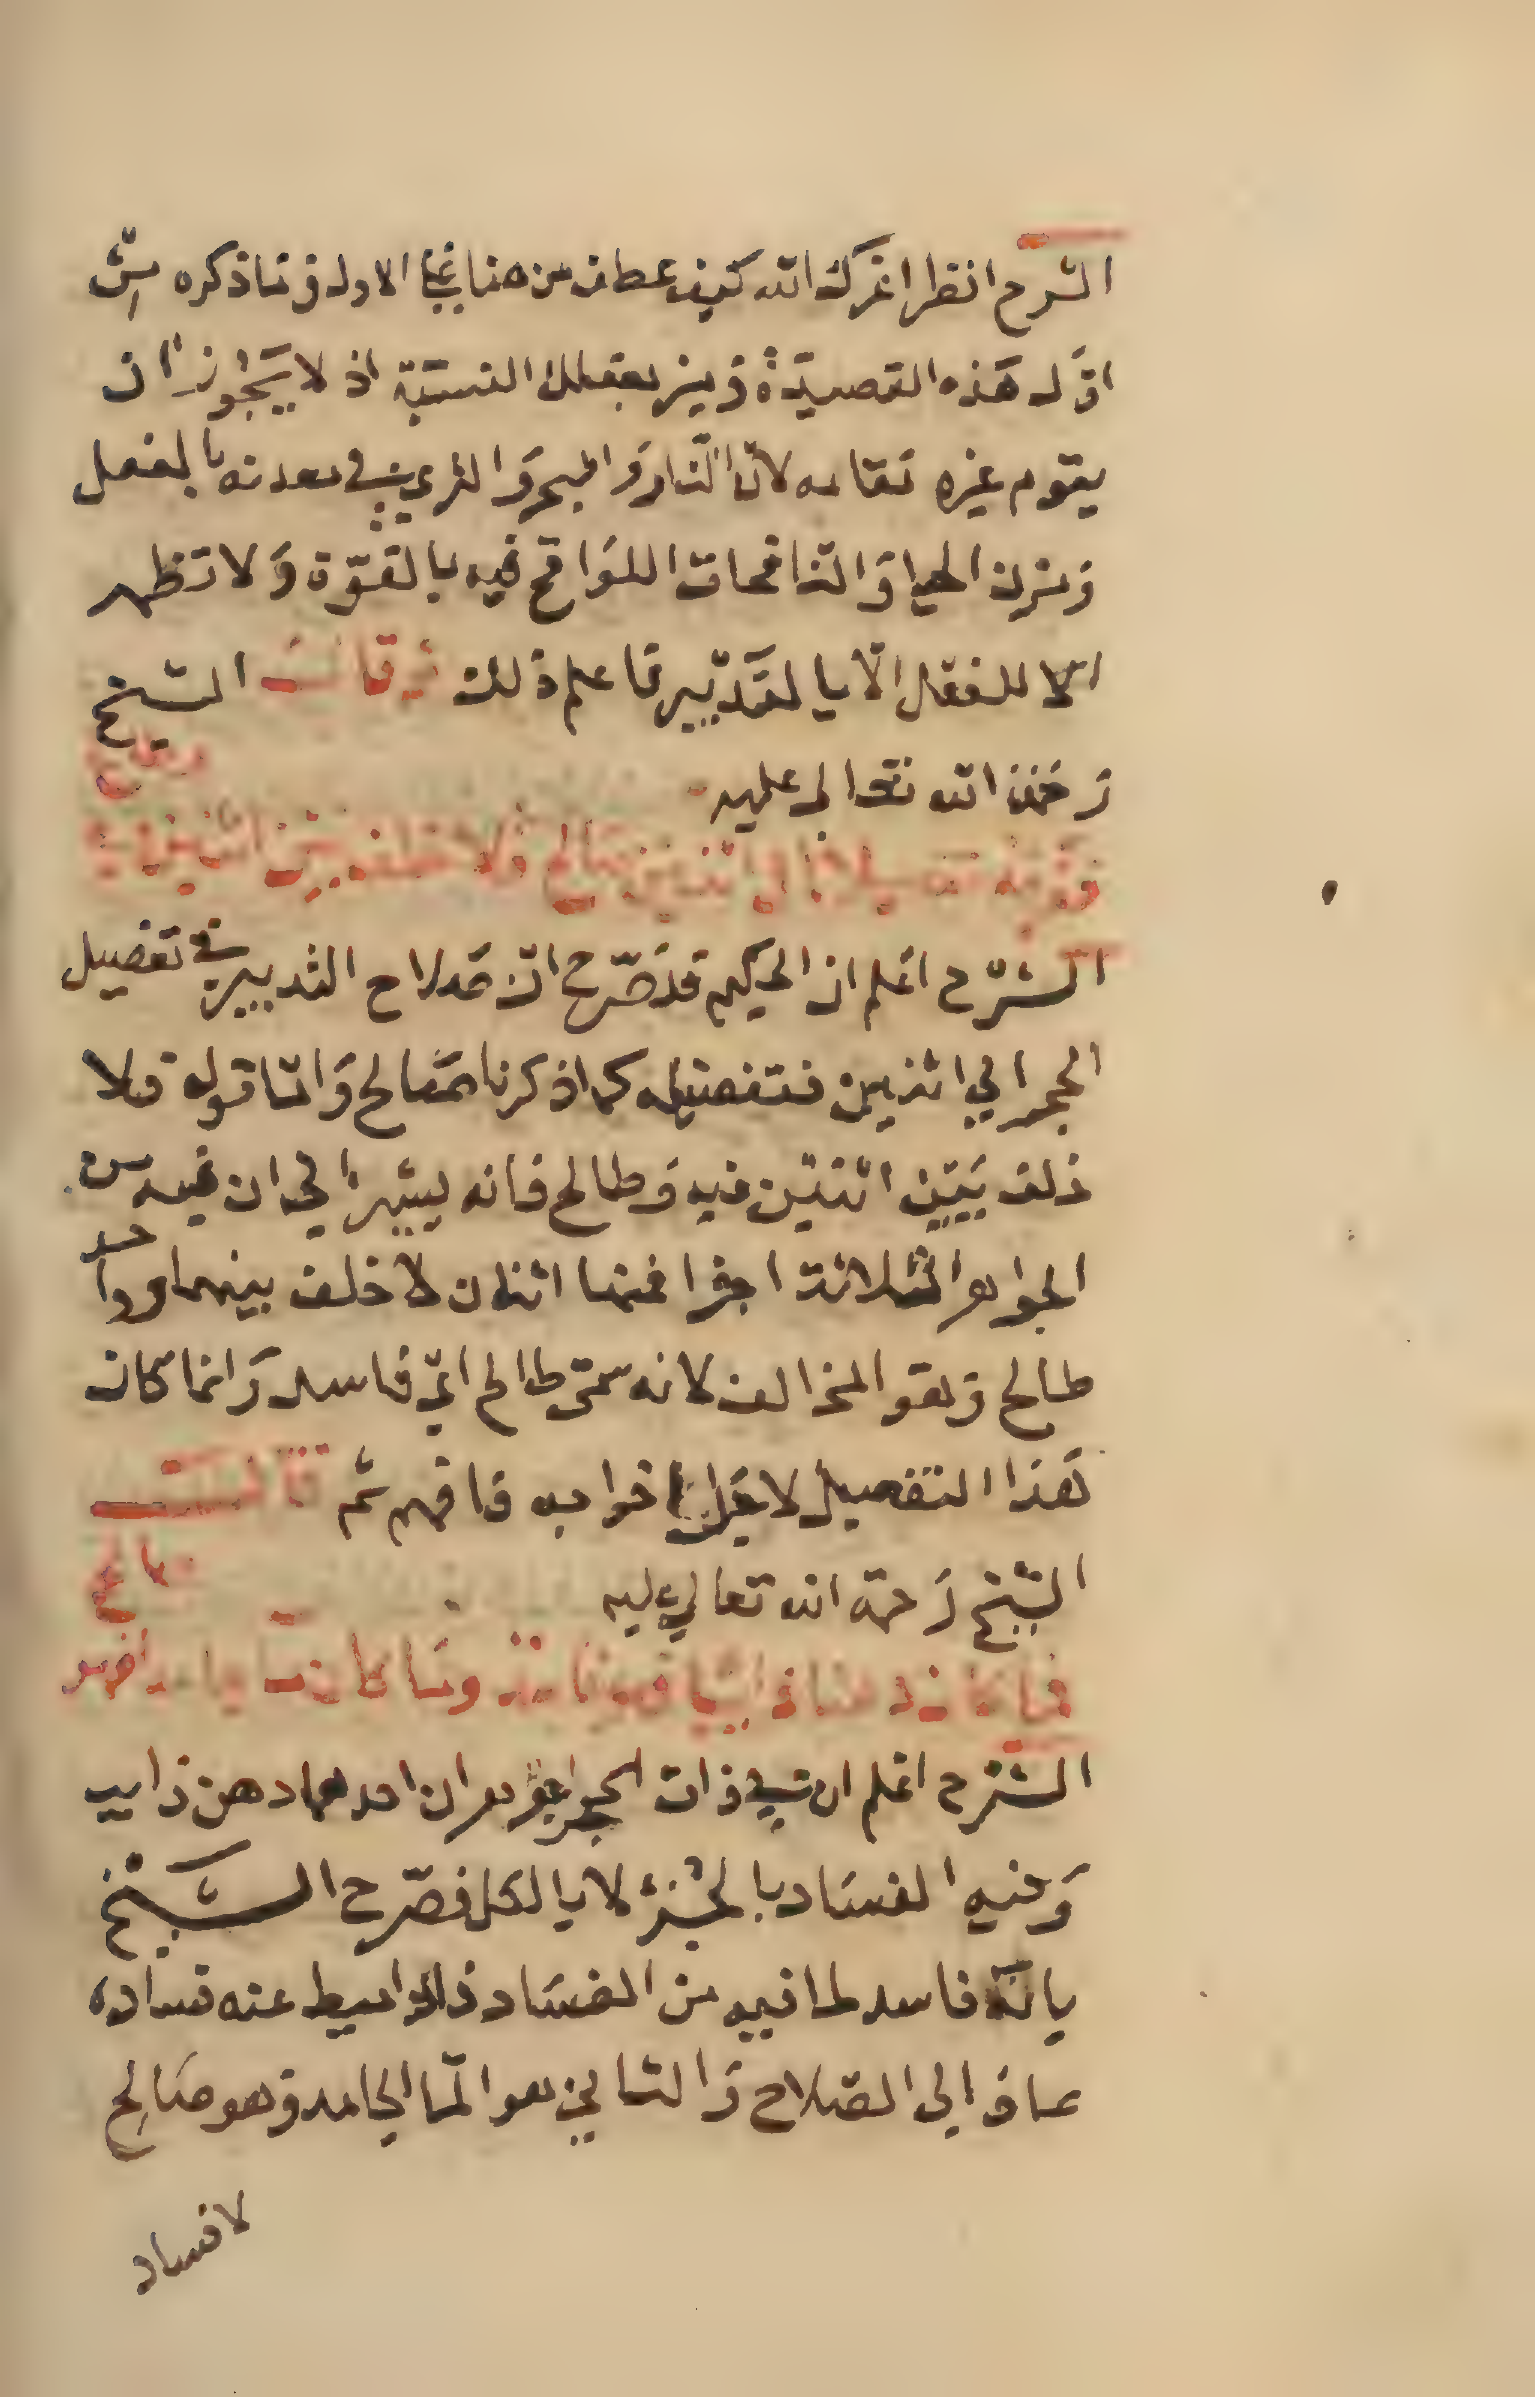 الشرح انظر اعزك الله كيف عطف من هنا على الاول في ما ذكره من
اول هذه القصيدة وميز بتلك النسبة اذ لا يجوز ان
يقوم غيره مقامه لان النار والبحر والثرى في معدنه بالفعل
ومزن الحيا والنافحات اللواقح فيه بالقوة ولا تظهر
الا للفعل الا بالتدبير فاعلم ذلك ثم قال الشيخ
رحمة الله تعالى عليه
الشرح اعلم ان الحكيم قد صرح ان صلاح التدبير في تفصيل
الحجر الي اثنين فتفصيله كما ذكرنا صالح واما قوله فلا
خلف بين اثنتين فيه وطالح فانه يشير الي ان فيه من
الجواهر الثلاثة اجزا فمنها اثنان لا خلف بينهما وواحد
طالح وهو المخالف لانه سمى طالح اي فاسد وانما كان
هذا التفصيل لاجل اخوانه فافهم ثم قال
الشيخ رحمة الله تعالي عليه
فما كان دهنا ذايبا وما كان
الشرح اعلم ان في ذات الحجر جوهران احدهما دهن ذايب
وفيه الفساد بالجزء لا بالكل فصرح الشيخ
بانه فاسد لما فيه من الفساد فاذا اميط عنه فساده
عاد الى الصلاح والثاني هو الما الجامد وهو صالح
لا فساد